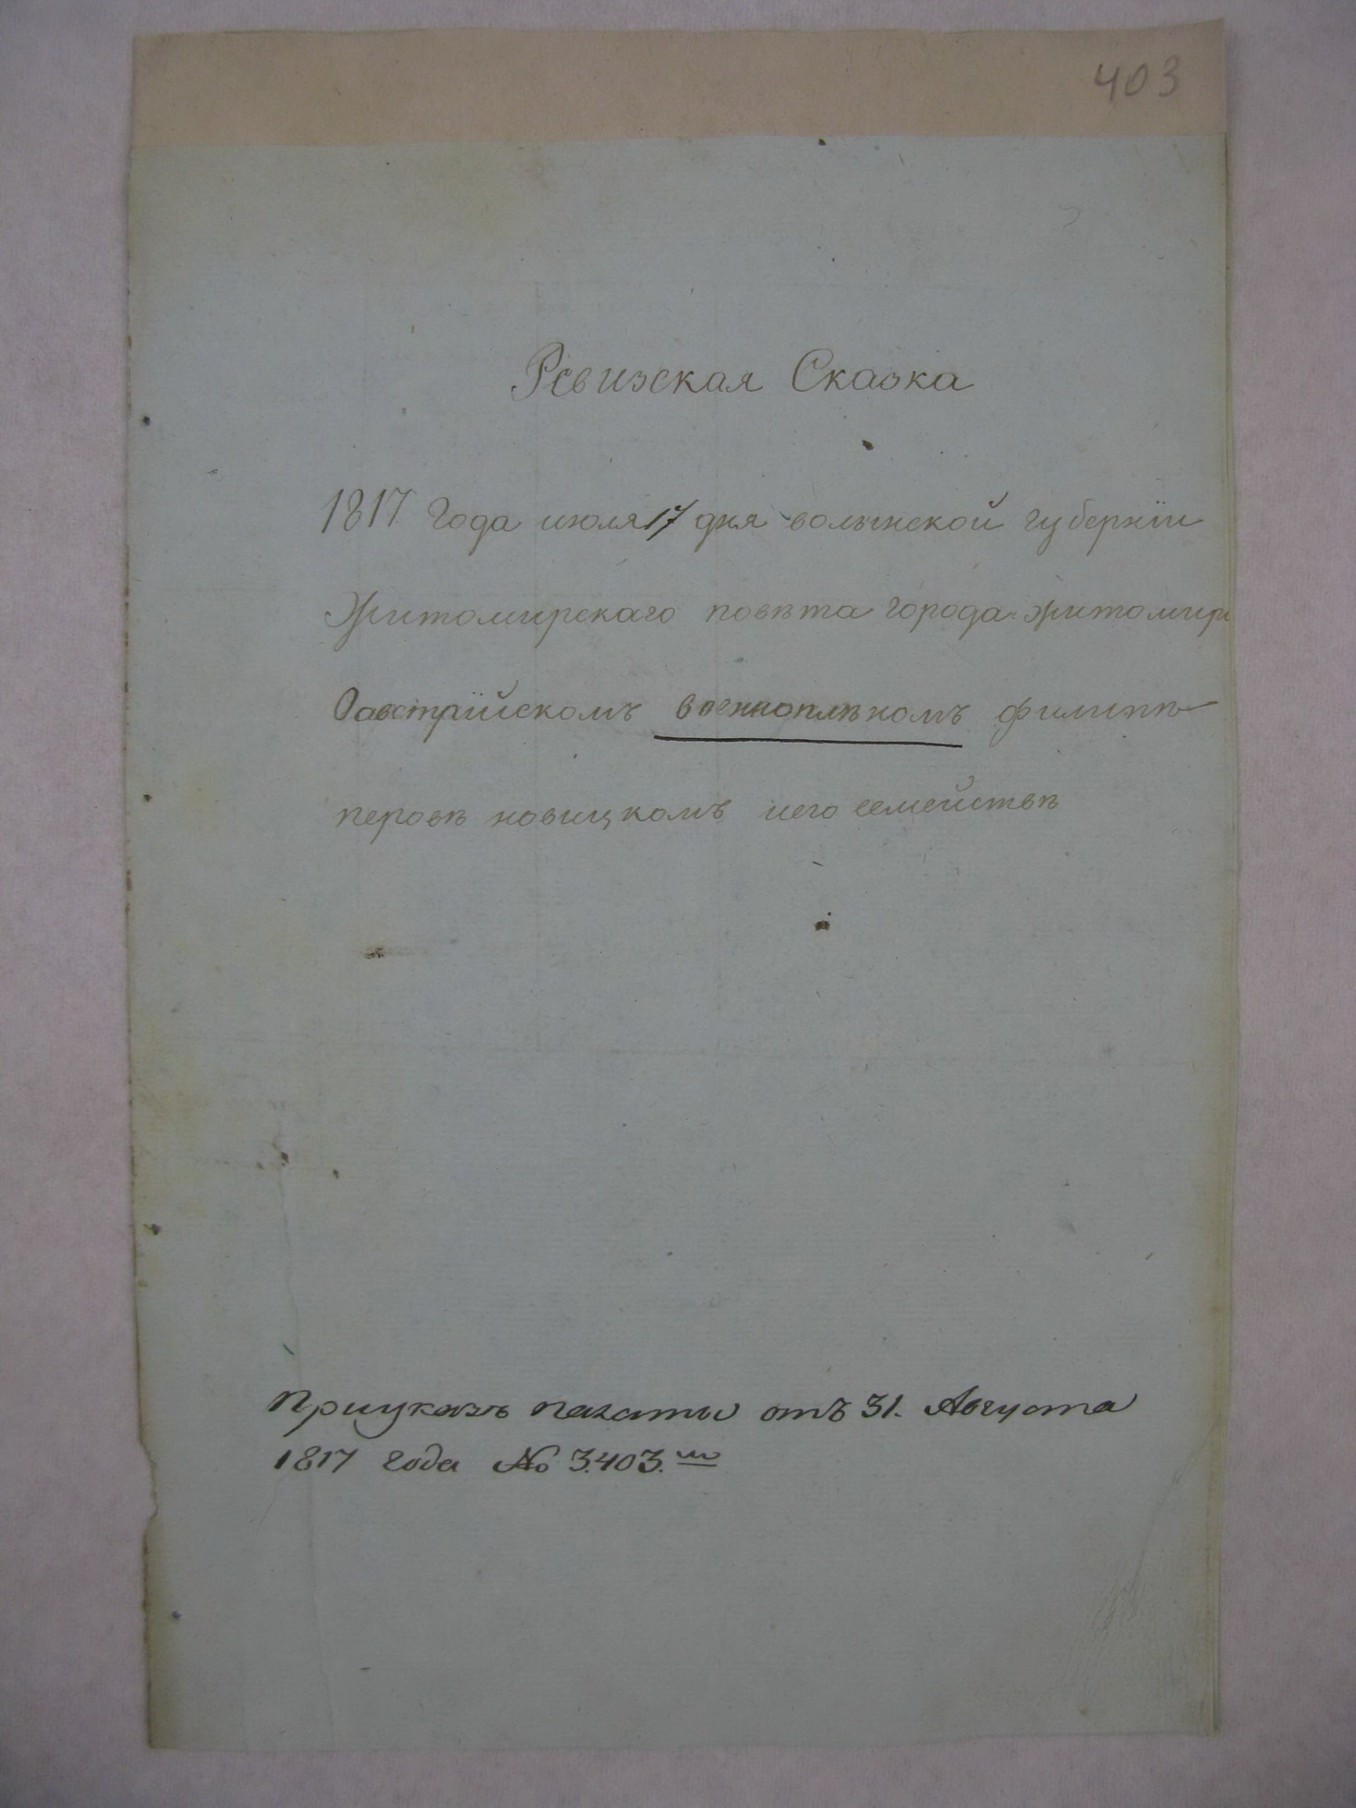 403
Ревизская Сказка
1817 Года июля 17 дня волынской губернїи
Житомирскаго повѣта города житомира
Оавстрїйскомъ военноплѣномъ филипѣ
перовѣ новицкомъ иего семействѣ
Приуказѣ палаты отъ 31. Августа
1817 года № 3.403.мъ